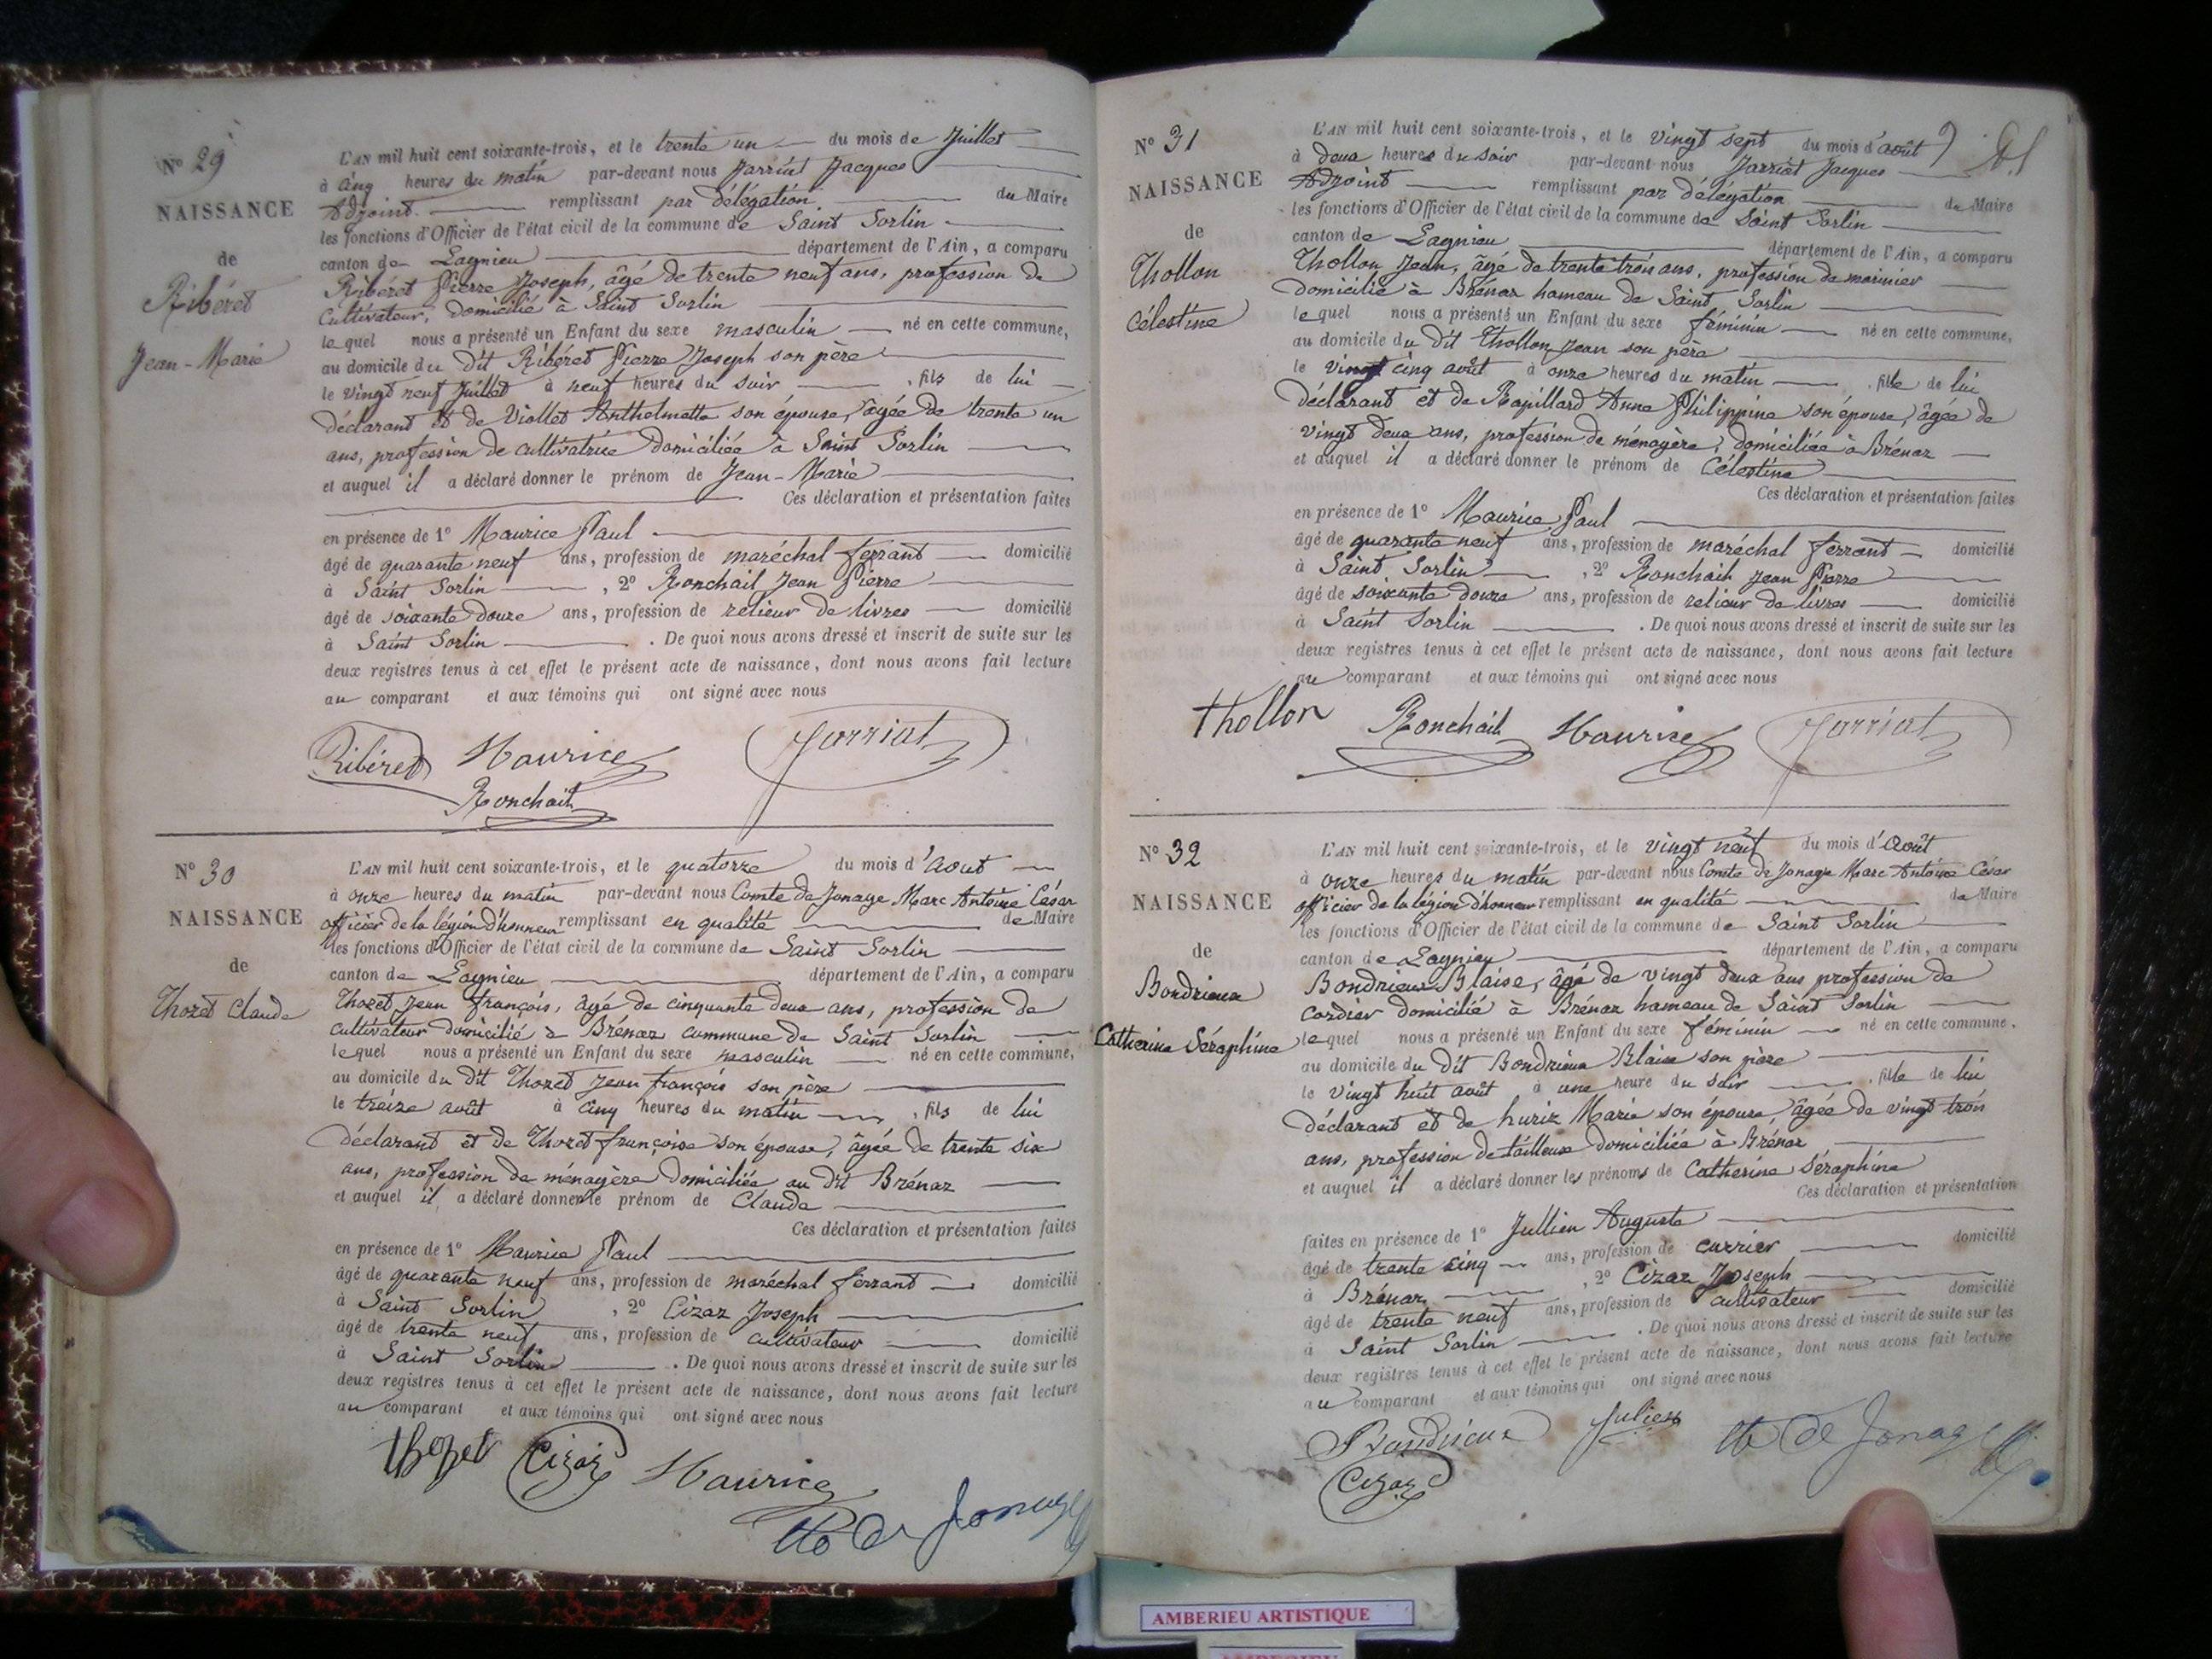 N° 29
NAISSANCE
de
Ribéret
Jean-Marie
L'AN mil huit cent soixante-trois, et le trente un du mois de Juillet
à cinq heures du matin par-devant nous Jarriat Jacques
Adjoint remplissant par délégation du Maire
les fonctions d'Officier de l'état civil de la commune de Saint Sorlin
canton de Lagnieu département de l'Ain, a comparu
Ribéret Pierre Joseph, âgé de trente neuf ans, profession de
cultivateur, domicilié à Saint Sorlin
lequel nous a présenté un Enfant du sexe masculin né en cette commune,
au domicile du dit Ribéret Pierre Joseph son père
le vingt neuf Juillet à neuf heures du soir , fils de lui
déclarant et de Viollet Anthelmette son épouse, âgée de trente un
ans, profession de cultivatrice domiciliée à Saint Sorlin
et auquel il a déclaré donner le prénom de Jean-Marie
Ces déclaration et présentation faites
en présence de 1° Maurice Paul
âgé de quarante neuf ans, profession de maréchal ferrant domicilié
à Saint Sorlin , 2° Ronchail Jean Pierre
âgé de soixante douze ans, profession de relieur de livres domicilié
à Saint Sorlin . De quoi nous avons dressé et inscrit de suite sur les
deux registres tenus à cet effet le présent acte de naissance, dont nous avons fait lecture
au comparant et aux témoins qui ont signé avec nous
Ribéret Maurice Jarriat
Ronchail
N° 30
NAISSANCE
de
Thozet Claude
L'AN mil huit cent soixante-trois, et le quatorze du mois d'aout
à onze heures du matin par-devant nous Comte de Jonage Marc Antoine César
officier de la légion d'honneur remplissant en qualité de Maire
les fonctions d'Officier de l'état civil de la commune de Saint Sorlin
canton de Lagnieu département de l'Ain, a comparu
Thozet Jean françois, âgé de cinquante deux ans, profession de
cultivateur domicilié à Brénaz commune de Saint Sorlin
lequel nous a présenté un Enfant du sexe masculin né en cette commune,
au domicile du dit Thozet Jean françois son père
le treize août à cinq heures du matin , fils de lui
déclarant et de Thozet françoise son épouse, âgée de trente six
ans, profession de ménagère domiciliée au dit Brénaz
et auquel il a déclaré donner le prénom de Claude
Ces déclaration et présentation faites
en présence de 1° Maurice Paul
âgé de quarante neuf ans, profession de maréchal ferrant domicilié
à Saint Sorlin , 2° Cizaz Joseph
âgé de trente neuf ans, profession de cultivateur domicilié
à Saint Sorlin . De quoi nous avons dressé et inscrit de suite sur les
deux registres tenus à cet effet le présent acte de naissance, dont nous avons fait lecture
au comparant et aux témoins qui ont signé avec nous
thozet Cizaz Maurice
Cte de Jonage
N° 31
NAISSANCE
de
Thollon
Célestine
L'AN mil huit cent soixante-trois, et le vingt sept du mois d'août
à deux heures du soir par-devant nous Jarriat Jacques
Adjoint remplissant par délégation du Maire
les fonctions d'Officier de l'état civil de la commune de Saint Sorlin
canton de Lagnieu département de l'Ain, a comparu
Thollon Jean, âgé de trente trois ans, profession de marinier
domicilié à Brénaz hameau de Saint Sorlin
lequel nous a présenté un Enfant du sexe féminin né en cette commune,
au domicile du dit Thollon Jean son père
le vingt cinq août à onze heures du matin , fille de lui
déclarant et de Rapillard Anne Philippine son épouse, âgée de
vingt deux ans, profession de ménagère, domiciliée à Brénaz
et auquel il a déclaré donner le prénom de Célestine
Ces déclaration et présentation faites
en présence de 1° Maurice Paul
âgé de quarante neuf ans, profession de maréchal ferrant domicilié
à Saint Sorlin , 2° Ronchail Jean Pierre
âgé de soixante douze ans, profession de relieur de livres domicilié
à Saint Sorlin . De quoi nous avons dressé et inscrit de suite sur les
deux registres tenus à cet effet le présent acte de naissance, dont nous avons fait lecture
au comparant et aux témoins qui ont signé avec nous
thollon Ronchail Maurice Jarriat
N° 32
NAISSANCE
de
Bondrieux
Catherine Séraphine
L'AN mil huit cent soixante-trois, et le vingt neuf du mois d'Août
à onze heures du matin par-devant nous Comte de Jonage Marc Antoine César
officier de la légion d'honneur remplissant en qualité de Maire
les fonctions d'Officier de l'état civil de la commune de Saint Sorlin
canton de Lagnieu département de l'Ain, a comparu
Bondrieux Blaise, âgé de vingt deux ans profession de
cordier domicilié à Brénaz hameau de Saint Sorlin
lequel nous a présenté un Enfant du sexe féminin né en cette commune,
au domicile du dit Bondrieux Blaise son père
le vingt huit août à une heure du soir , fille de lui
déclarant et de huriz Marie son épouse, âgée de vingt trois
ans, profession de tailleuse domiciliée à Brénaz
et auquel il a déclaré donner les prénoms de Catherine Séraphine
Ces déclaration et présentation
faites en présence de 1° Jullien Auguste
âgé de trente cinq ans, profession de carrier domicilié
à Brénaz , 2° Cizaz Joseph
âgé de trente neuf ans, profession de cultivateur domicilié
à Saint Sorlin . De quoi nous avons dressé et inscrit de suite sur les
deux registres tenus à cet effet le présent acte de naissance, dont nous avons fait lecture
au comparant et aux témoins qui ont signé avec nous
Bondrieux Julien Cte de Jonage
Cizaz
AMBERIEU ARTISTIQUE
AMBERIEU